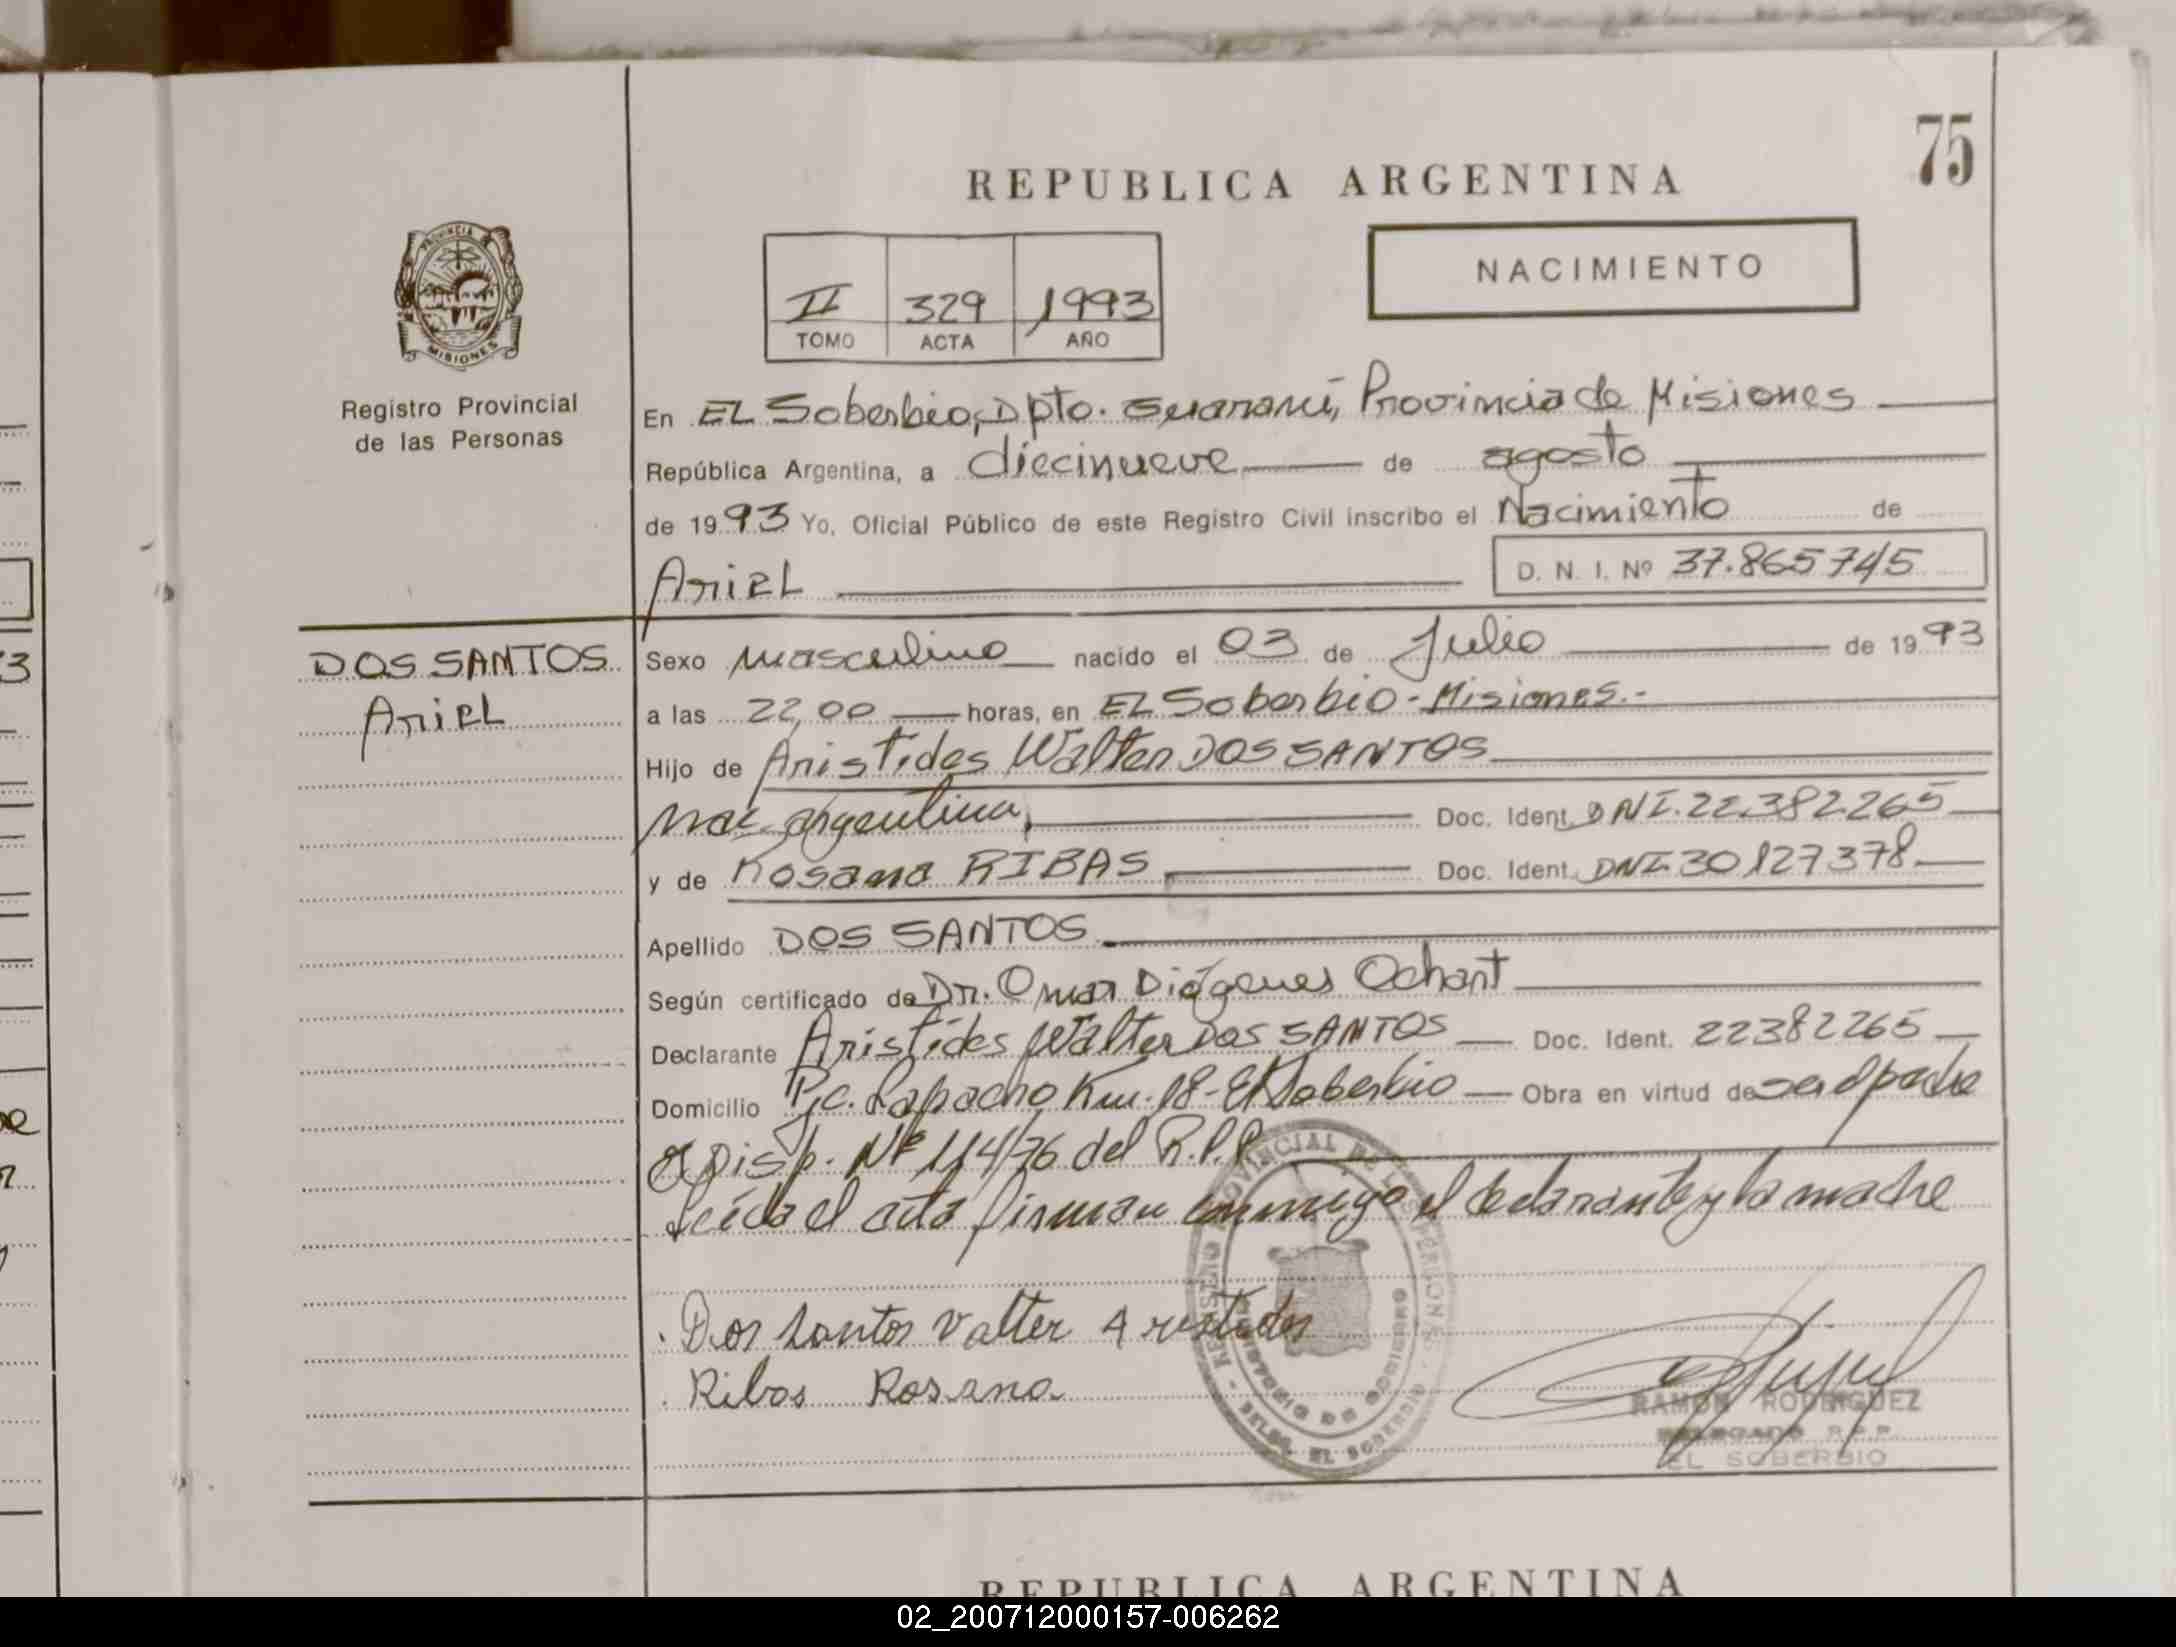 75
REPUBLICA ARGENTINA
PROVINCIA
MISIONES
Registro Provincial
de las Personas
NACIMIENTO
II 329 1993
TOMO ACTA AÑO
En EL Soberbio, Dpto. Guaraní, Provincia de Misiones
República Argentina, a diecinueve de agosto
de 1993 Yo, Oficial Público de este Registro Civil inscribo el Nacimiento de
Ariel D. N. I. Nº 37.865745
DOS SANTOS
Ariel
Sexo masculino nacido el 03 de Julio de 1993
a las 22,00 horas, en EL Soberbio - Misiones.-
Hijo de Aristides Walter DOS SANTOS
nac. argentina, Doc. Ident. DNI. 22382265
y de Rosana RIBAS Doc. Ident. DNI. 30127378
Apellido DOS SANTOS
Según certificado de Dr. Omar Diógenes Ochant
Declarante Aristides Walter DOS SANTOS Doc. Ident. 22382265
Domicilio Pje. Lapacho Km. 18 - El Soberbio Obra en virtud de ser el padre
Disp. Nº 114/76 del R.P.P.
Leída el acta firman conmigo el declarante y la madre
Dos Santos Valter Aristides
Ribas Rosana
RAMON RODRIGUEZ
DELEGADO R.P.P.
EL SOBERBIO
REGISTRO PROVINCIAL DE LAS PERSONAS - DELEG. EL SOBERBIO
MINISTERIO DE GOBIERNO
REPUBLICA ARGENTINA
02_200712000157-006262